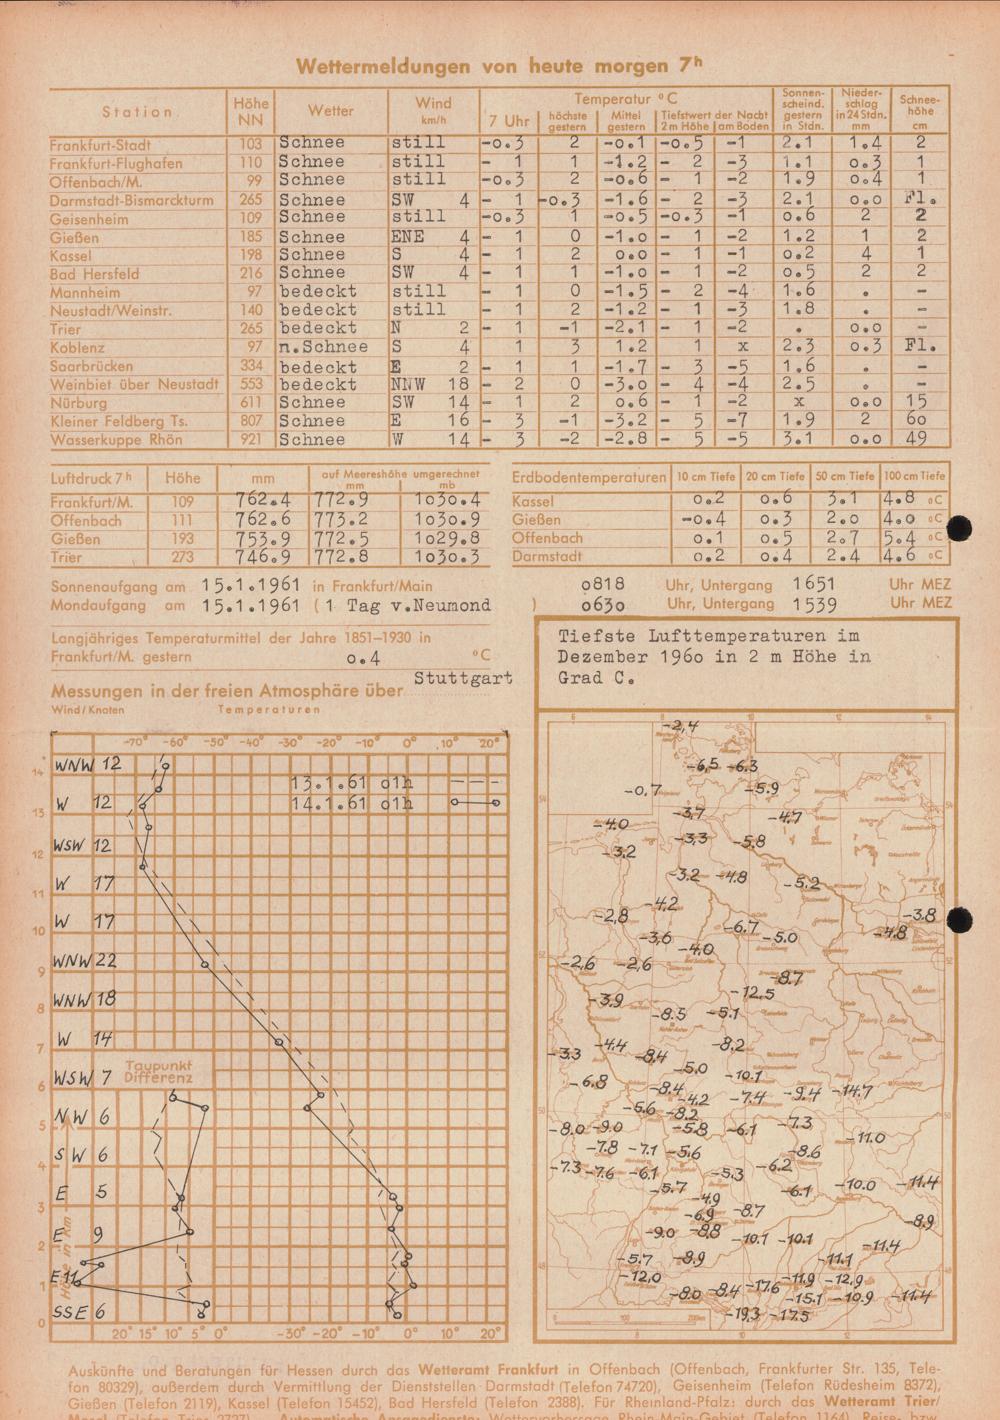 Wettermeldungen von heute morgen 7h
Station Höhe NN Wetter Wind km/h Temperatur °C Sonnenscheind. gestern in Stdn. Niederschlag in 24 Stdn. mm Schneehöhe cm
7 Uhr höchste gestern Mittel gestern Tiefstwert der Nacht 2 m Höhe am Boden
Frankfurt-Stadt 103 Schnee still -0.3 2 -0.1 -0.5 -1 2.1 1.4 2
Frankfurt-Flughafen 110 Schnee still - 1 1 -1.2 - 2 -3 1.1 0.3 1
Offenbach/M. 99 Schnee still -0.3 2 -0.6 - 1 -2 1.9 0.4 1
Darmstadt-Bismarckturm 265 Schnee SW 4 - 1 -0.3 -1.6 - 2 -3 2.1 0.0 Fl.
Geisenheim 109 Schnee still -0.3 1 -0.5 -0.3 -1 0.6 2 2
Gießen 185 Schnee ENE 4 - 1 0 -1.0 - 1 -2 1.2 1 2
Kassel 198 Schnee S 4 - 1 2 0.0 - 1 -1 0.2 4 1
Bad Hersfeld 216 Schnee SW 4 - 1 1 -1.0 - 1 -2 0.5 2 2
Mannheim 97 bedeckt still - 1 0 -1.5 - 2 -4 1.6 . -
Neustadt/Weinstr. 140 bedeckt still - 1 2 -1.2 - 1 -3 1.8 . -
Trier 265 bedeckt N 2 - 1 -1 -2.1 - 1 -2 . 0.0 -
Koblenz 97 n.Schnee S 4 1 3 1.2 1 x 2.3 0.3 Fl.
Saarbrücken 334 bedeckt E 2 - 1 1 -1.7 - 3 -5 1.6 . -
Weinbiet über Neustadt 553 bedeckt NNW 18 - 2 0 -3.0 - 4 -4 2.5 . -
Nürburg 611 Schnee SW 14 - 1 2 0.6 - 1 -2 x 0.0 15
Kleiner Feldberg Ts. 807 Schnee E 16 - 3 -1 -3.2 - 5 -7 1.9 2 60
Wasserkuppe Rhön 921 Schnee W 14 - 3 -2 -2.8 - 5 -5 3.1 0.0 49
Luftdruck 7h Höhe mm auf Meereshöhe umgerechnet mm mb
Frankfurt/M. 109 762.4 772.9 1030.4
Offenbach 111 762.6 773.2 1030.9
Gießen 193 753.9 772.5 1029.8
Trier 273 746.9 772.8 1030.3
Erdbodentemperaturen 10 cm Tiefe 20 cm Tiefe 50 cm Tiefe 100 cm Tiefe
Kassel 0.2 0.6 3.1 4.8 °C
Gießen -0.4 0.3 2.0 4.0 °C
Offenbach 0.1 0.5 2.7 5.4 °C
Darmstadt 0.2 0.4 2.4 4.6 °C
Sonnenaufgang am 15.1.1961 in Frankfurt/Main 0818 Uhr, Untergang 1651 Uhr MEZ
Mondaufgang am 15.1.1961 (1 Tag v.Neumond ) 0630 Uhr, Untergang 1539 Uhr MEZ
Langjähriges Temperaturmittel der Jahre 1851–1930 in
Frankfurt/M. gestern 0.4 °C
Messungen in der freien Atmosphäre über Stuttgart
Wind/Knoten Temperaturen
-70° -60° -50° -40° -30° -20° -10° 0° 10° 20°
WNW 12
14
13.1.61 01h
14.1.61 01h
W 12
13
WSW 12
12
W 17
11
W 17
10
WNW 22
9
WNW 18
8
W 14
7
WSW 7
Taupunkt
Differenz
6
NW 6
5
SW 6
4
E 5
3
E 9
2
E 11
1
SSE 6
0
Höhe in Km
20° 15° 10° 5° 0° -30° -20° -10° 0° 10° 20°
Tiefste Lufttemperaturen im
Dezember 1960 in 2 m Höhe in
Grad C.
-2,4
-6,5 -6.3
-0,7 -5.9
-3,7 -4.7
-4.0
-3,3 -5.8
-3.2
-3.2 -4.8 -5.2
-4.2
-2,8 -3.8
-6.7 -4.8
-3,6 -5.0
-4.0
-2,6 -2,6
-8.7
-12,5
-3.9
-8.5 -5.1
-4.4 -8.2
-3.3 -8.4
-5.0 -10.1
-6.8
-8.4 -4.2 -7.4 -9.4 -14.7
-5.6 -8.2
-8.0 -9.0 -5.8 -6.1 -7.3
-11.0
-7.8 -7.1 -5.6 -8.6
-7.3 -7.6 -6.1 -5.3 -6.2
-5.7 -6.1 -10.0 -11.4
-4.9
-6.9 -8.7
-8.9
-9.0 -8.8
-10.1 -10.1 -11.4
-5.7 -8.9 -11.1
-12.0 -11.9 -12.9
-8.0 -8.4 -17.6 -15.1 -10.9 -11.4
-19.3 -17.5
Auskünfte und Beratungen für Hessen durch das Wetteramt Frankfurt in Offenbach (Offenbach, Frankfurter Str. 135, Tele-
fon 80329), außerdem durch Vermittlung der Dienststellen Darmstadt (Telefon 74720), Geisenheim (Telefon Rüdesheim 8372),
Gießen (Telefon 2119), Kassel (Telefon 15452), Bad Hersfeld (Telefon 2388). Für Rheinland-Pfalz: durch das Wetteramt Trier/